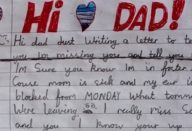 Hi DAD!
Hi dad Just Writing a letter to te
you Im missing you and tell you
Im Sure you know Im in fr
Couse mom is sick and my ear is
blocked from MONDAY What tomm
Were leaving so I really miss Se
and you I know your up